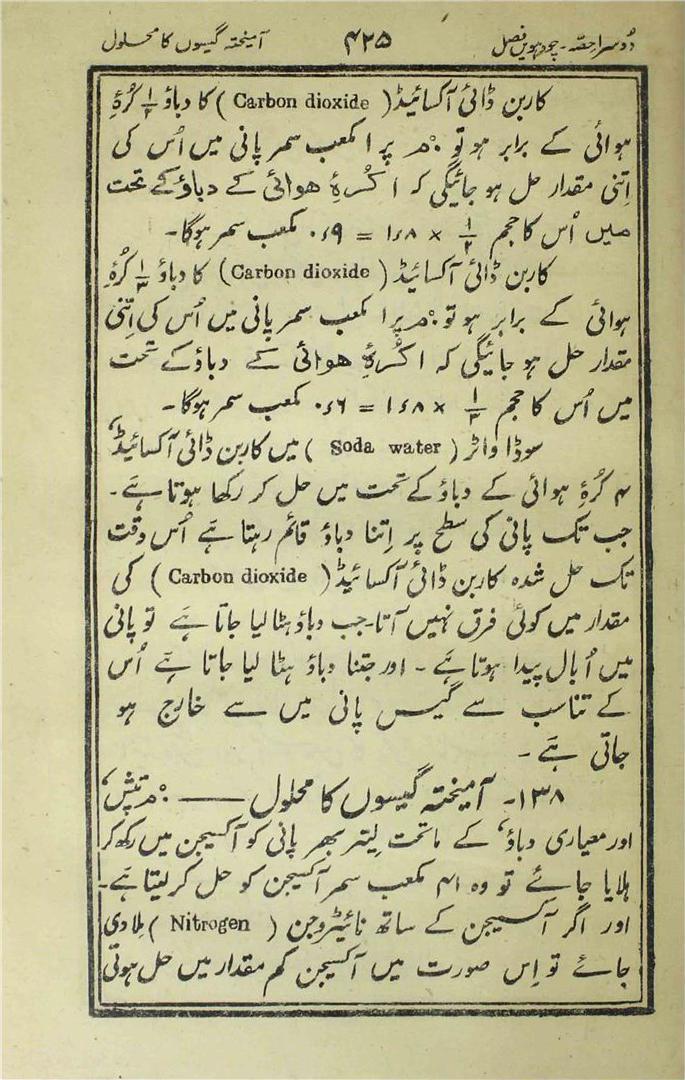 دُوسرا حِصّہ۔ چودہویں فصل ۴۲۵ آمیختہ گیسوں کا محلول
کاربن ڈائی آکسائیڈ ( Carbon dioxide ) کا دباؤ ۱/۲ کُرۂِ
ہوائی کے برابر ہو تو °م پر ۱ مکعب سمر پانی میں اُس کی
اِتنی مقدار حل ہو جائیگی کہ ۱ کُرۂِ ھوائی کے دباؤ کے تحت
میں اُس کا حجم ۱/۲ × ۱ء۸ = ۰ء۹ مکعب سمر ہوگا۔
کاربن ڈائی آکسائیڈ ( Carbon dioxide ) کا دباؤ ۱/۳ کُرۂِ
ہوائی کے برابر ہو تو °م پر ۱ مکعب سمر پانی میں اُس کی اِتنی
مقدار حل ہو جائیگی کہ ۱ کُرۂِ ھوائی کے دباؤ کے تحت
میں اُس کا حجم ۱/۳ × ۱ء۸ = ۰ء۶ مکعب سمر ہوگا۔
سوڈا واٹر ( Soda water ) میں کاربن ڈائی آکسائیڈ،
۴ کُرۂِ ہوائی کے دباؤ کے تحت میں حل کر رکھا ہوتا ہے۔
جب تک پانی کی سطح پر اِتنا دباؤ قائم رہتا ہے اُس وقت
تک حل شدہ کاربن ڈائی آکسائیڈ ( Carbon dioxide ) کی
مقدار میں کوئی فرق نہیں آتا۔ جب دباؤ ہٹا لیا جاتا ہے تو پانی
میں اُبال پیدا ہوتا ہے۔ اور جتنا دباؤ ہٹا لیا جاتا ہے اُس
کے تناسب سے گیس پانی میں سے خارج ہو
جاتی ہے۔
۱۳۸۔ آمیختہ گیسوں کا محلول —— °م تپش،
اور معیاری دباؤ، کے ماتحت لِیتر بھر پانی کو آکسیجن میں رکھ کر
ہلایا جائے تو وہ ۴۱ مکعب سمر آکسیجن کو حل کر لیتا ہے۔
اور اگر آکسیجن کے ساتھ نائیٹروجن ( Nitrogen ) مِلا دی
جائے تو اِس صورت میں آکسیجن کم مقدار میں حل ہوتی